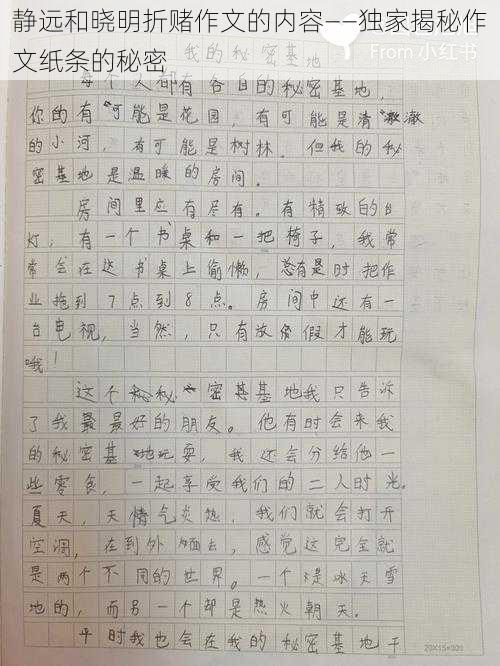 静远和晓明折赌作文的内容——独家揭秘作
文纸条的秘密
我的秘密基地
From 小红书
每个人都有各自的秘密基地，
你的有可能是花园，有可能是清澈
的小河，有可能是树林。但我的秘
密基地是温暖的房间。
房间里应有尽有。有精致的台
灯，有一个书桌和一把椅子，我常
常会在这书桌上偷懒，总有是时把作
业拖到7点到8点。房间中还有一
台电视，当然，只有放假才能玩
哦！
这个秘密基地我只告诉
了我最最好的朋友。他有时会来我
的秘密基地玩耍，我还会分给他一
些零食，一起享受我们的二人时光。
夏天，天情气炎热，我们就会打开
空调，在到外面去，感觉这完全就
是两个不同的世界。一个是冰天雪
地的，而另一个却是热火朝天。
平时我也会在我的秘密基地干
20X15=300